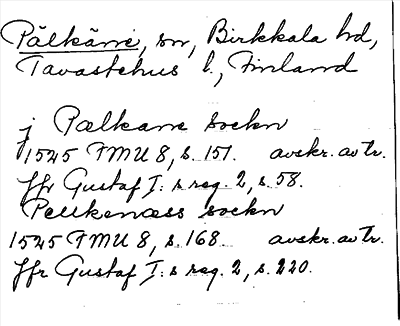 Pälkäne, sn, Birkkala hd,
Tavastehus l., Finland
j Pælkane sockn
1545 FMU 8, s. 151. avskr. av tr.
Jfr Gustaf I:s reg. 2, s. 58.
Pelikenæss sockn
1545 FMU 8, s. 168. avskr. av tr.
Jfr Gustaf I:s reg. 2, s. 220.